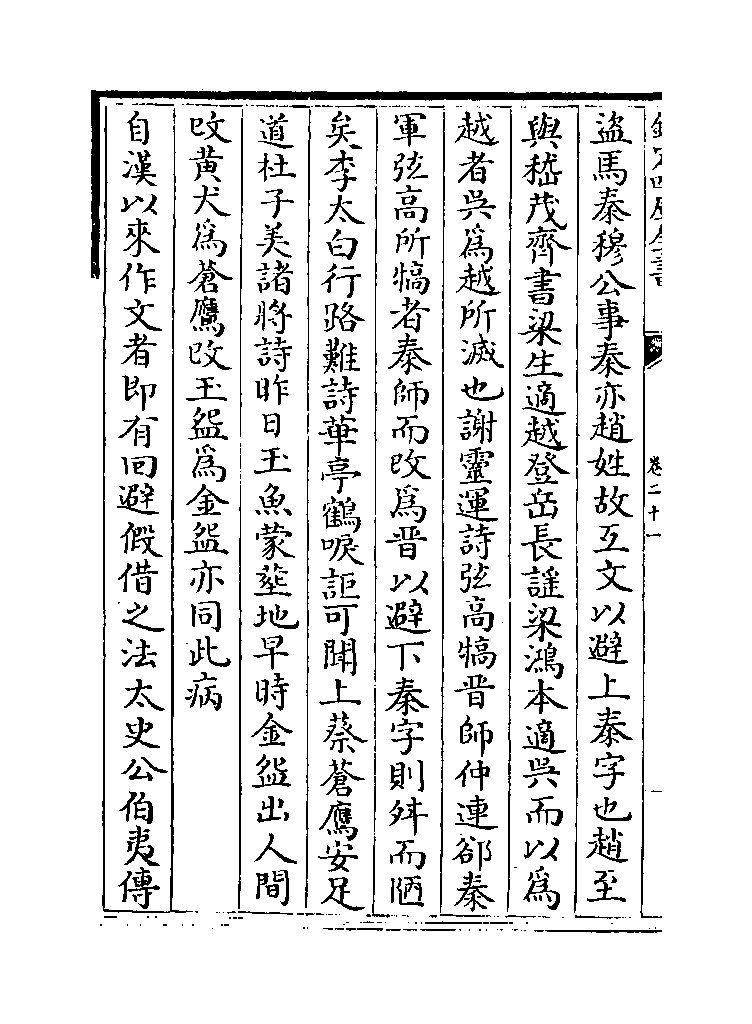 欽定四庫全書
卷二十一
盜馬秦穆公事秦亦趙姓故互文以避上秦字也趙至
與嵇茂齊書梁生適越登岳長謠梁鴻本適吳而以爲
越者吳爲越所滅也謝靈運詩弦高犒晉師仲連郤秦
軍弦高所犒者秦師而改爲晉以避下秦字則舛而陋
矣李太白行路難詩華亭鶴唳詎可聞上蔡蒼鷹安足
道杜子美諸將詩昨日玉魚蒙塟地早時金盌出人間
改黃犬爲蒼鷹改玉盌爲金盌亦同此病
自漢以來作文者即有回避假借之法太史公伯夷傳